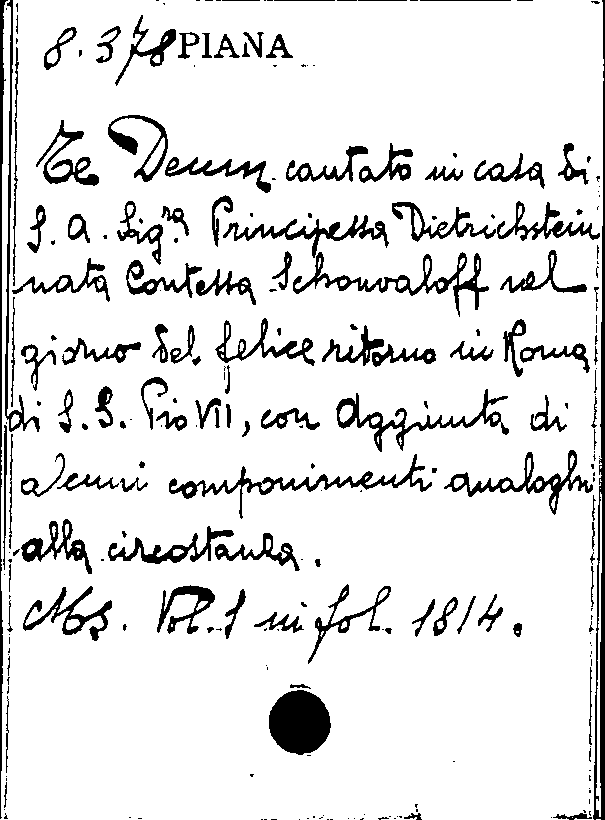 8.378 PIANA
Te Deum cantato in casa di
S. A. Sig.ra Principessa Dietrichstein
nata Contessa Schouvaloff nel
giorno del felice ritorno in Roma
di S. S. Pio VII, con Aggiunta di
alcuni componimenti analoghi
alla circostanza.
Ms. Vol. 1 in fol. 1814.